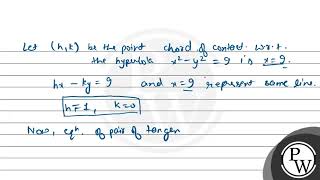 Let (h,k) be the point chord of contact w.r.t.
the hyperbola x² - y² = 9 is x = 9.
hx - ky = 9 and x = 9 represent same line.
h = 1, k = 0
Now, eqn. of pair of tangen
PW